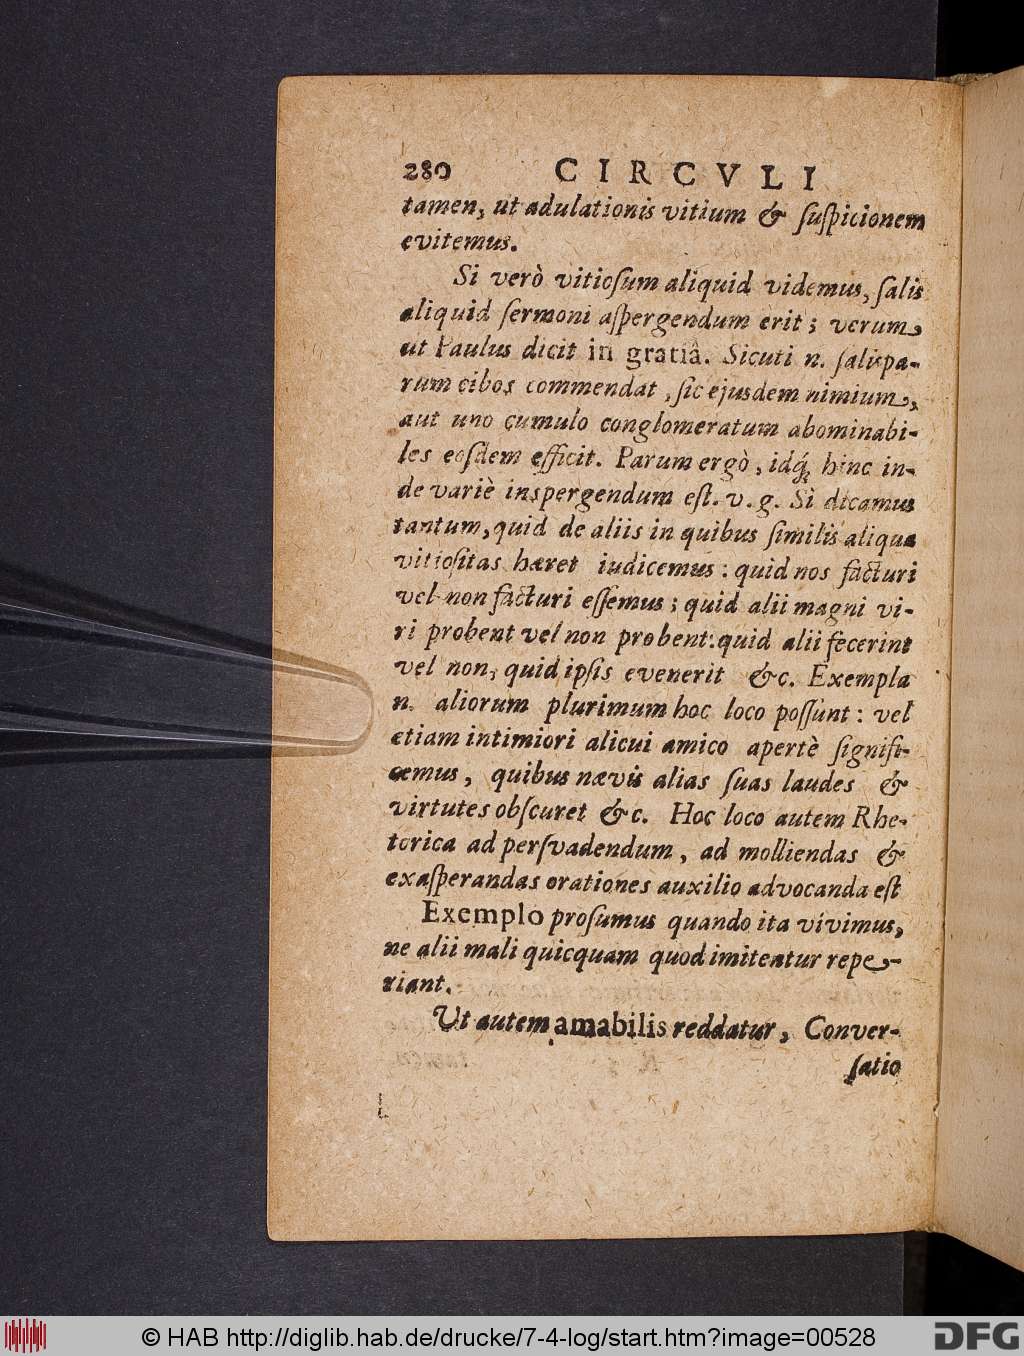 280 CIRCVLI
tamen, ut adulationis vitium & suspicionem
evitemus.
Si verò vitiosum aliquid videmus, salis
aliquid sermoni aspergendum erit; verum
ut Paulus dicit in gratiâ. Sicuti n. salis pa-
rum cibos commendat, sic ejusdem nimium,
aut uno cumulo conglomeratum abominabi-
les eosdem efficit. Parum ergò, idq́; hinc in-
de variè inspergendum est. v. g. Si dicamus
tantum, quid de aliis in quibus similis aliqua
vitiositas hæret iudicemus: quid nos facturi
vel non facturi essemus; quid alii magni vi-
ri probent vel non probent: quid alii fecerint
vel non, quid ipsis evenerit &c. Exempla
n. aliorum plurimum hoc loco possunt: vel
etiam intimiori alicui amico apertè signifi-
cemus, quibus nævis alias suas laudes &
virtutes obscuret &c. Hoc loco autem Rhe-
torica ad persvadendum, ad molliendas &
exasperandas orationes auxilio advocanda est
Exemplo prosumus quando ita vivimus,
ne alii mali quicquam quod imitentur repe-
riant.
Ut autem amabilis reddatur, Conver-
satio
© HAB http://diglib.hab.de/drucke/7-4-log/start.htm?image=00528
DFG